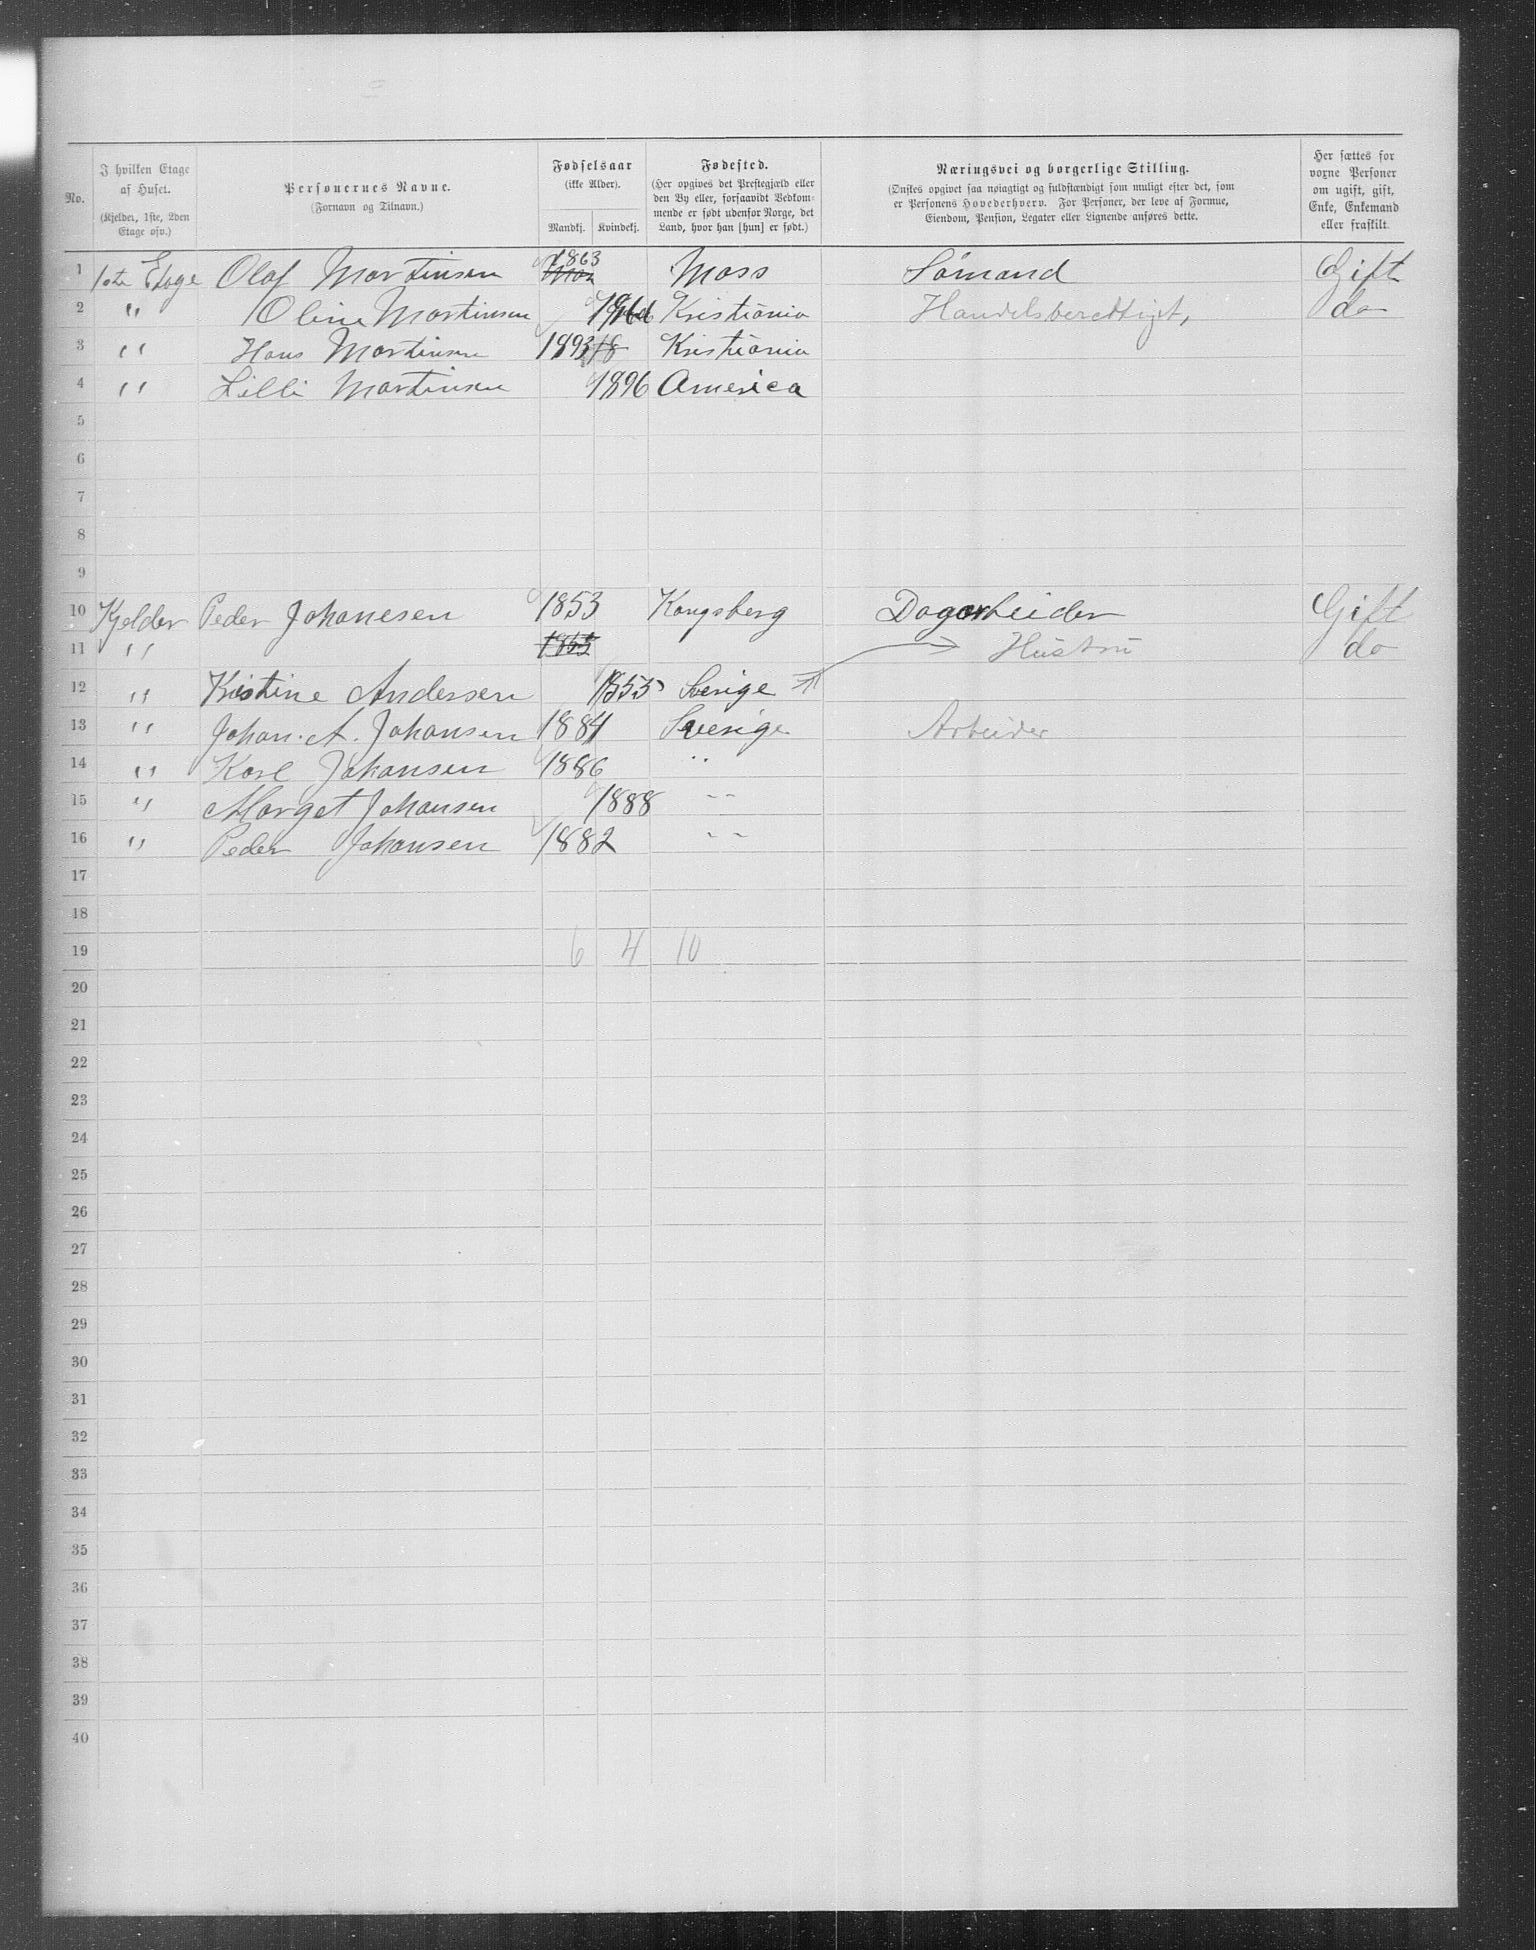 No.
I hvilken Etage af Huset. (Kjelder, 1ste, 2den Etage osv.)
Personernes Navne. (Fornavn og Tilnavn.)
Fødselsaar (ikke Alder). Mandkj. Kvindekj.
Fødested. (Her opgives det Prestegjæld eller den By eller, forsaavidt Vedkommende er født udenfor Norge, det Land, hvor han [hun] er født.)
Næringsvei og borgerlige Stilling. (Ønskes opgivet saa nøiagtigt og fuldstændigt som muligt efter det, som er Personens Hovederhverv. For Personer, der leve af Formue, Eiendom, Pension, Legater eller Lignende anføres dette.
Her sættes for voxne Personer om ugift, gift, Enke, Enkemand eller fraskilt.
1 1ste Etage Olaf Martinsen 1863 Moss Sømand Gift
2 " Oline Martinsen Kristiania Handelsberettigt, do
3 " Hans Martinsen 1893 Kristiania
4 " Lilli Martinsen 1896 America
5
6
7
8
9
10 Kjelder Peder Johanesen 1853 Kongsberg Dagarbeider Gift
11 " Hustru do
12 " Kristine Andersen 1855 Sverige
13 " Johan. A. Johansen 1884 Sverige Arbeider
14 " Karl Johansen 1886 "
15 " Marget Johansen 1888 "
16 " Peder Johansen 1882 "
17
18
19 6 4 10
20
21
22
23
24
25
26
27
28
29
30
31
32
33
34
35
36
37
38
39
40